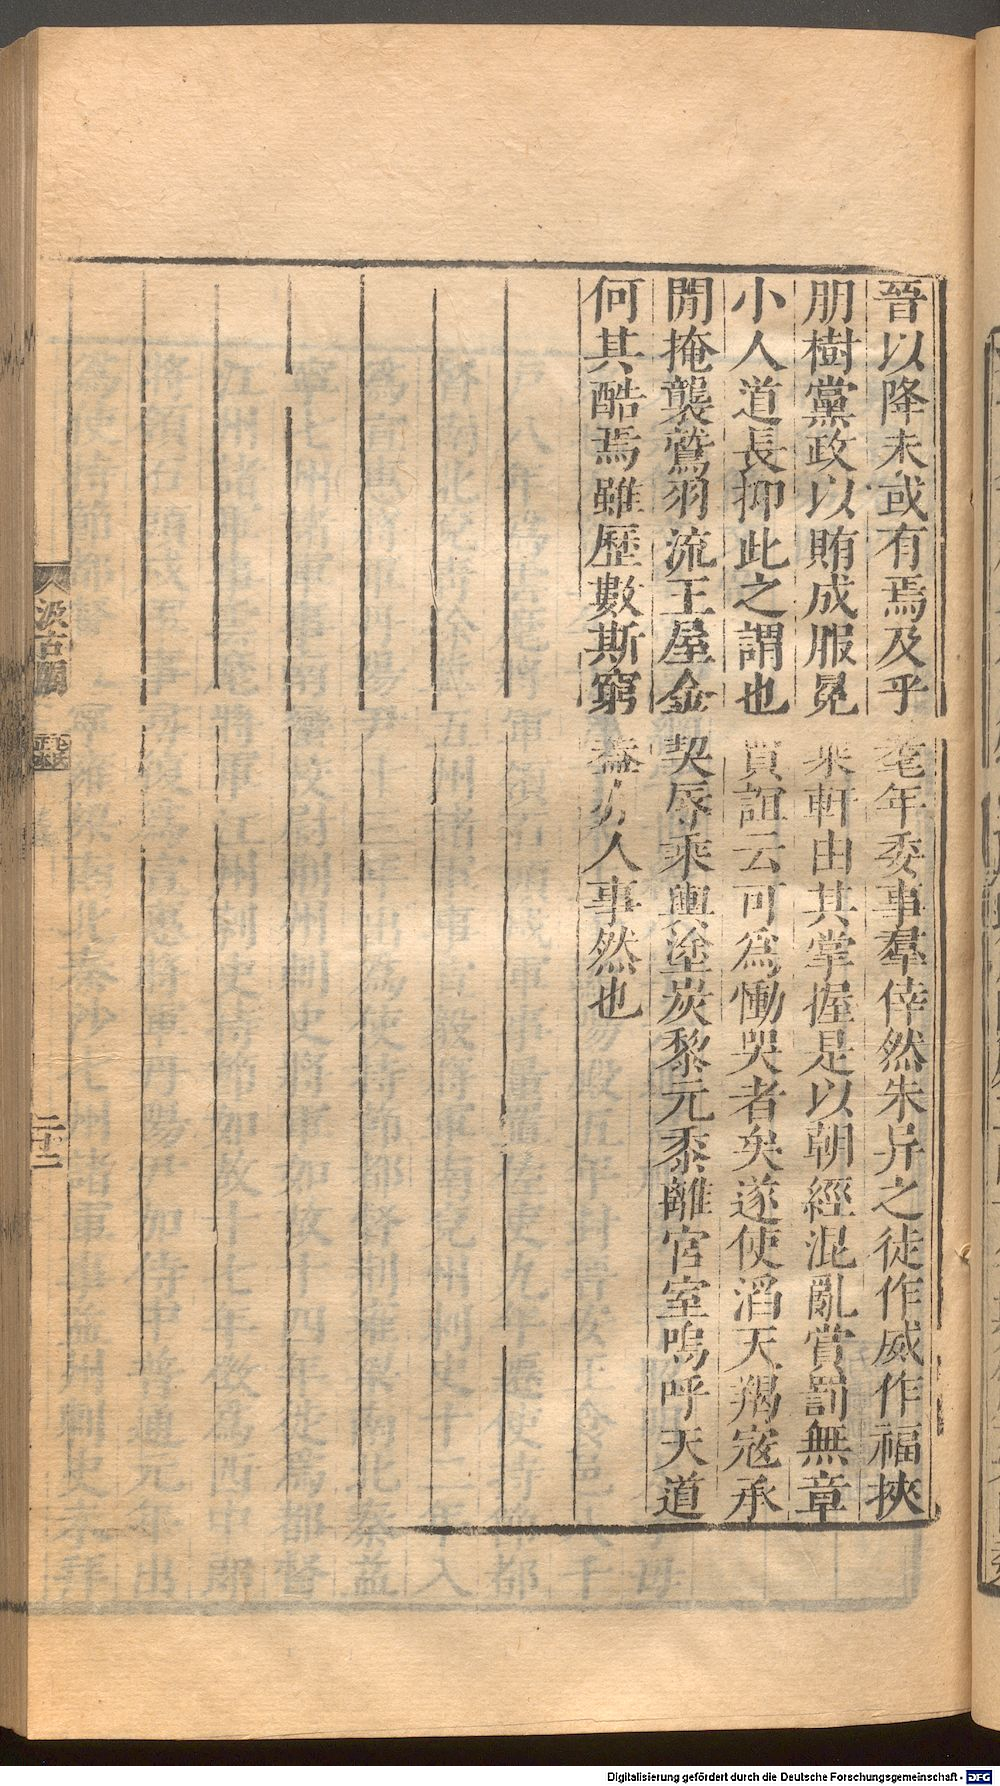 晉以降未或有焉及乎耄年委事羣倖然朱异之徒作威作福挾
朋樹黨政以賄成服冕乘軒由其掌握是以朝經混亂賞罰無章
小人道長抑此之謂也賈誼云可爲慟哭者矣遂使滔天羯寇承
閒掩襲鷲羽流王屋金契辱乘輿塗炭黎元黍離宮室嗚呼天道
何其酷焉雖歷數斯窮蓋亦人事然也
汲古閣
毛氏
正本
二十二
Digitalisierung gefördert durch die Deutsche Forschungsgemeinschaft - DFG